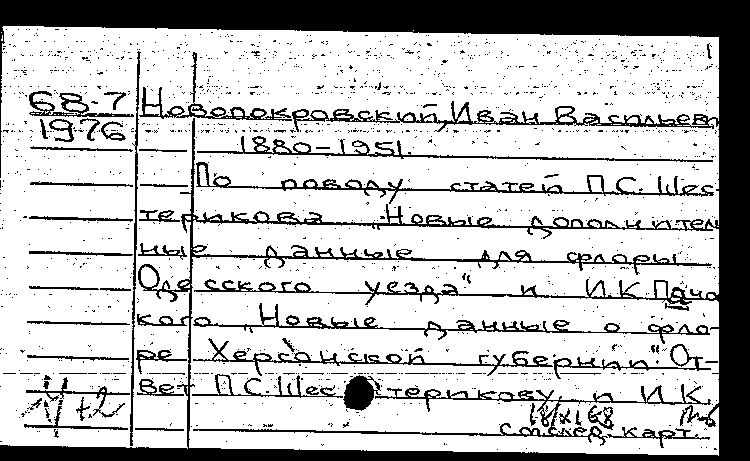 68-7 Новопокровский, Иван Васильев
1976
1880-1951.
По поводу статей П.С. Шес-
терикова „Новые дополнител
ные данные для флоры
Одесского уезда" и И.К. Пачо
кого „Новые данные о фло-
ре Херсонской губернии". От-
вет П.С. Шестерикову и И.К.
см. след. карт.